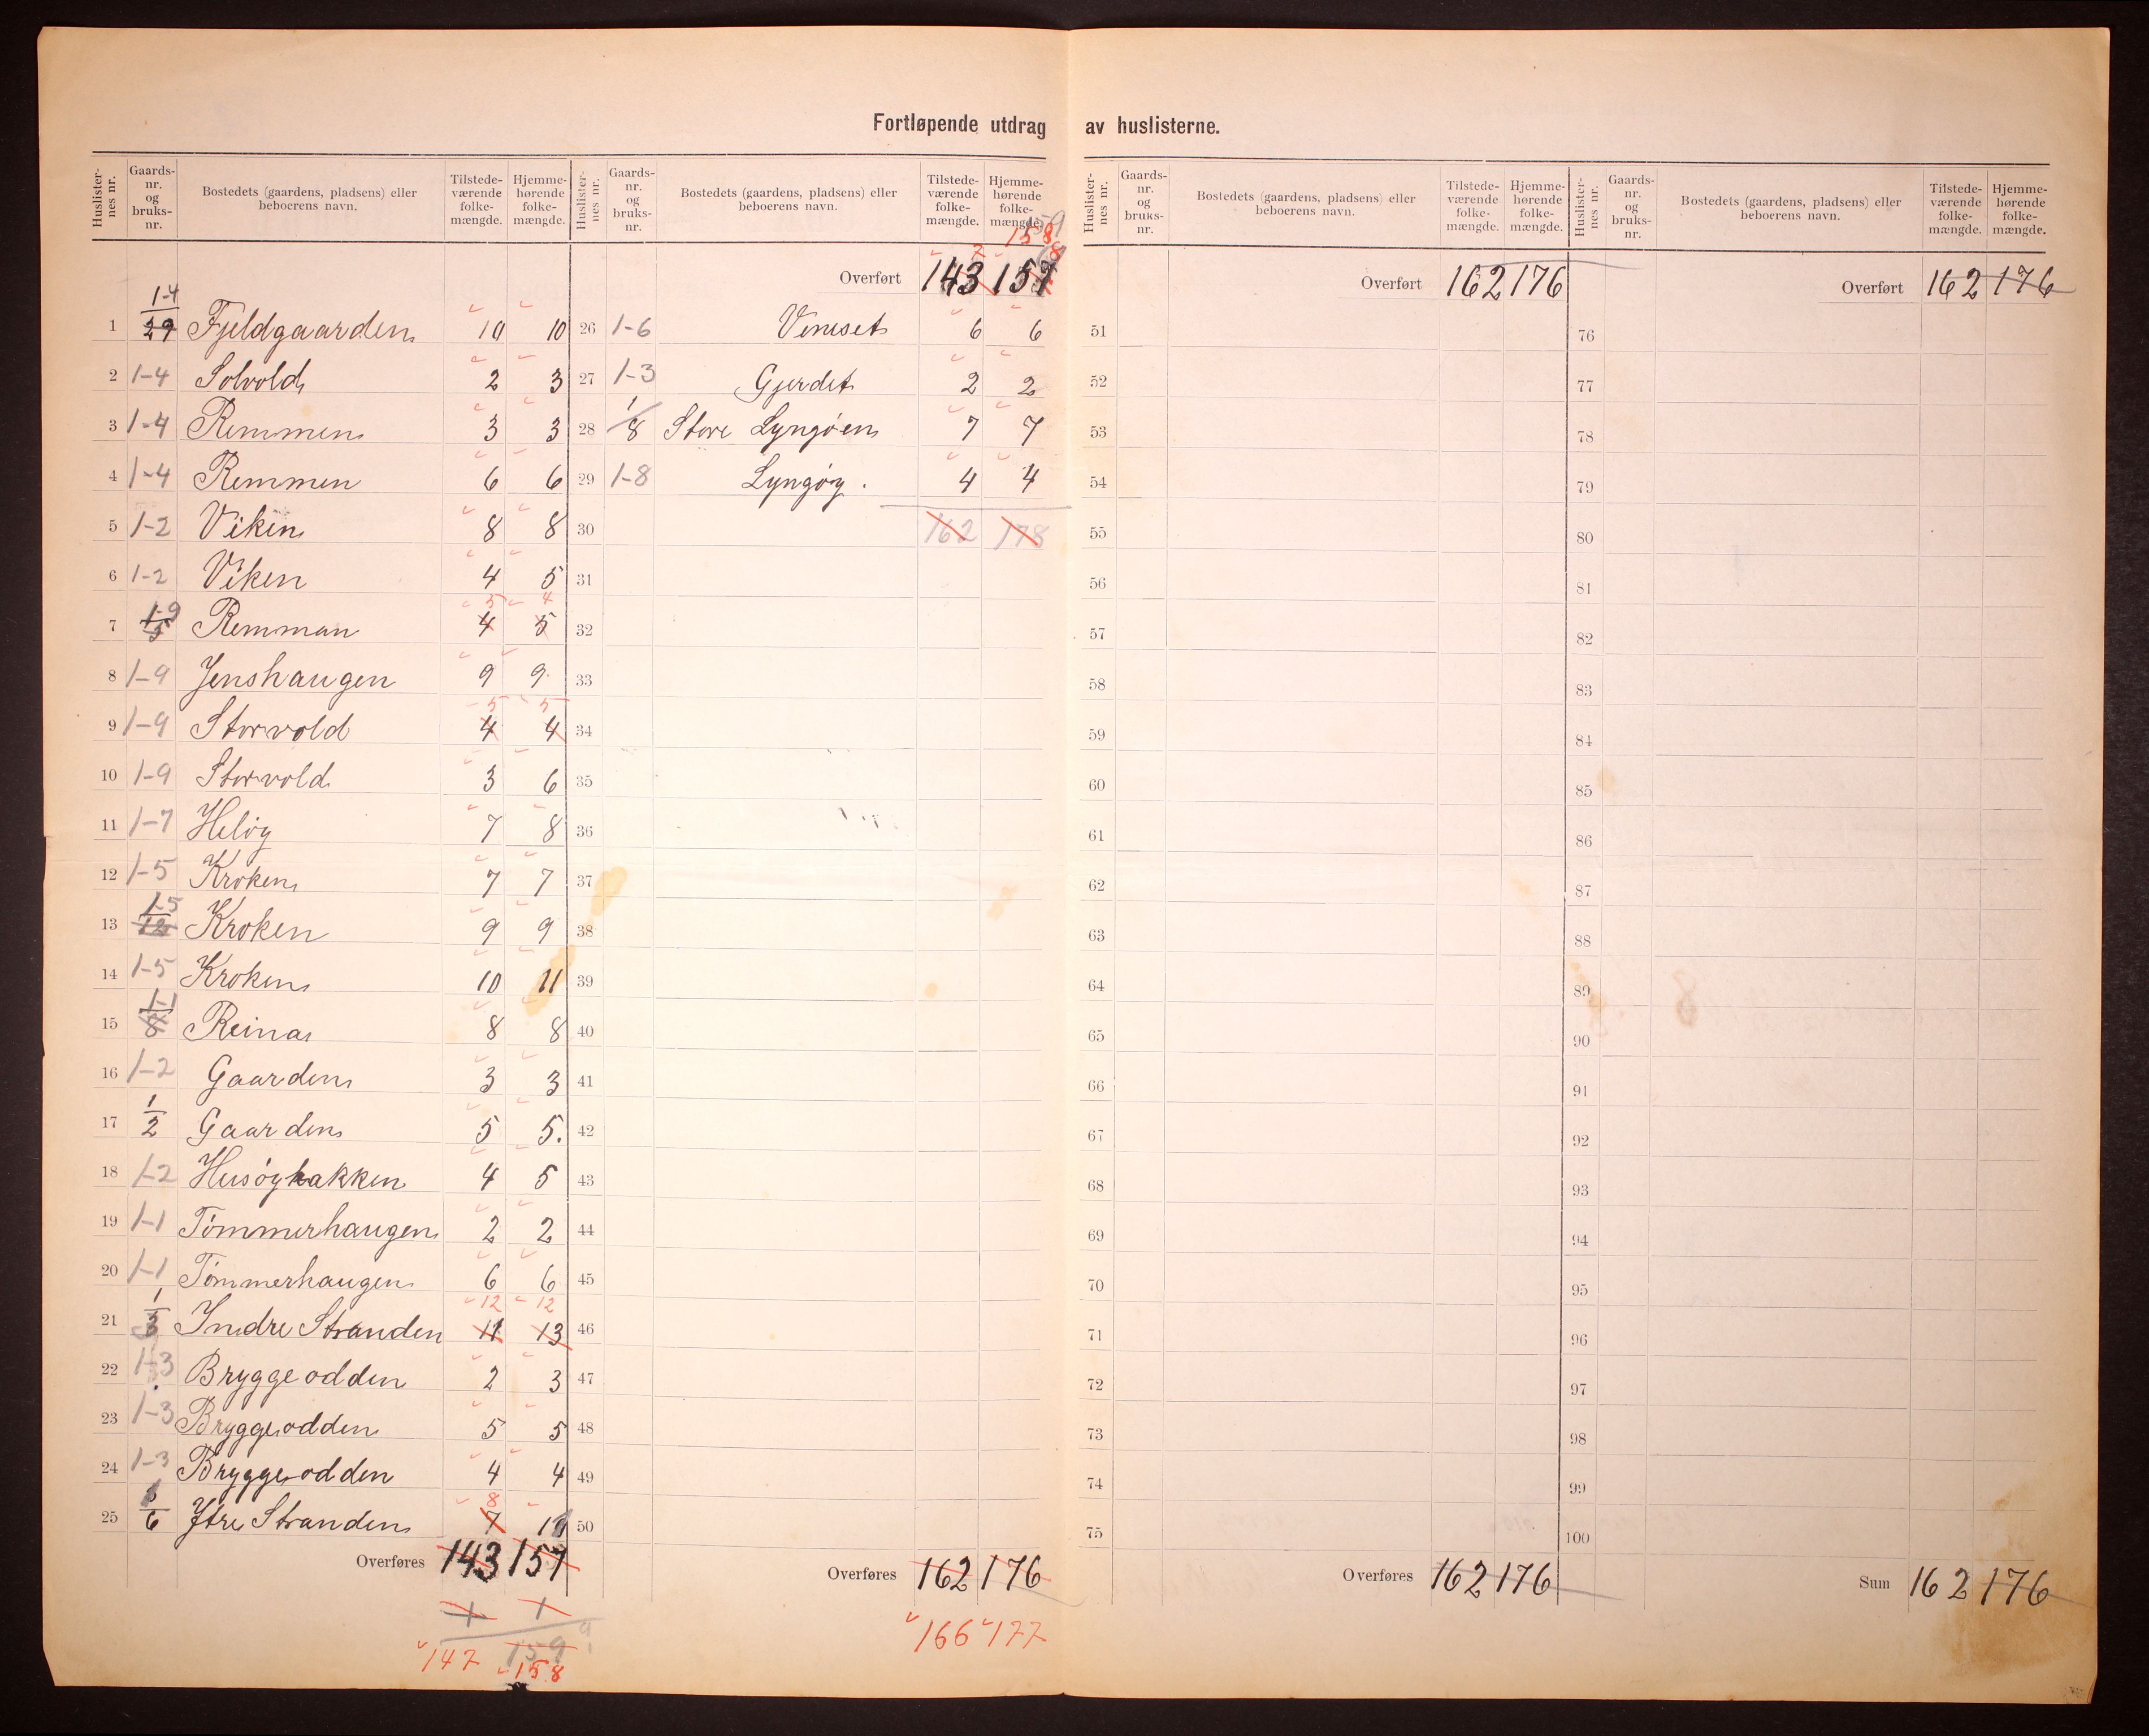 Fortløpende utdrag av huslisterne.
Huslisternes nr. Gaards-nr. og bruks-nr. Bostedets (gaardens, pladsens) eller beboerens navn. Tilstedeværende folkemængde. Hjemmehørende folkemængde.
1 1-4 29 Fjeldgaarden 10 10
2 1-4 Solvold 2 3
3 1-4 Remmen 3 3
4 1-4 Remmen 6 6
5 1-2 Viken 8 8
6 1-2 Viken 4 5
7 1-9 5 Remman 4 5 5 4
8 1-9 Jenshaugen 9 9
9 1-9 Storvold 4 4 5 5
10 1-9 Storvold 3 6
11 1-7 Heløy 7 8
12 1-5 Kroken 7 7
13 1-5 12 Kroken 9 9
14 1-5 Kroken 10 11
15 1-1 8 Reina 8 8
16 1-2 Gaarden 3 3
17 1/2 Gaarden 5 5.
18 1-2 Husøybakken 4 5
19 1-1 Tømmerhaugen 2 2
20 1-1 Tømmerhaugen 6 6
21 1/3 Indre Stranden 11 13 12 12
22 1-3 Bryggeodden 2 3
23 1-3 Bryggeodden 5 5
24 1-3 Bryggeodden 4 4
25 6 Ytre Stranden 7 8
Overføres 143 157
1 1
159
147 158
Huslisternes nr. Gaards-nr. og bruks-nr. Bostedets (gaardens, pladsens) eller beboerens navn. Tilstedeværende folkemængde. Hjemmehørende folkemængde.
158
Overført 143 157
26 1-6 Veneset 6 6
27 1-3 Gjerdet 2 2
28 1/8 Store Lyngøen 7 7
29 1-8 Lyngøy. 4 4
30 162 178
31
32
33
34
35
36
37
38
39
40
41
42
43
44
45
46
47
48
49
50
Overføres 162 176
166 177
Huslisternes nr. Gaards-nr. og bruks-nr. Bostedets (gaardens, pladsens) eller beboerens navn. Tilstedeværende folkemængde. Hjemmehørende folkemængde.
Overført 162 176
51
52
53
54
55
56
57
58
59
60
61
62
63
64
65
66
67
68
69
70
71
72
73
74
75
Overføres 162 176
Huslisternes nr. Gaards-nr. og bruks-nr. Bostedets (gaardens, pladsens) eller beboerens navn. Tilstedeværende folkemængde. Hjemmehørende folkemængde.
Overført 162 176
76
77
78
79
80
81
82
83
84
85
86
87
88
89
90
91
92
93
94
95
96
97
98
99
100
Sum 162 176